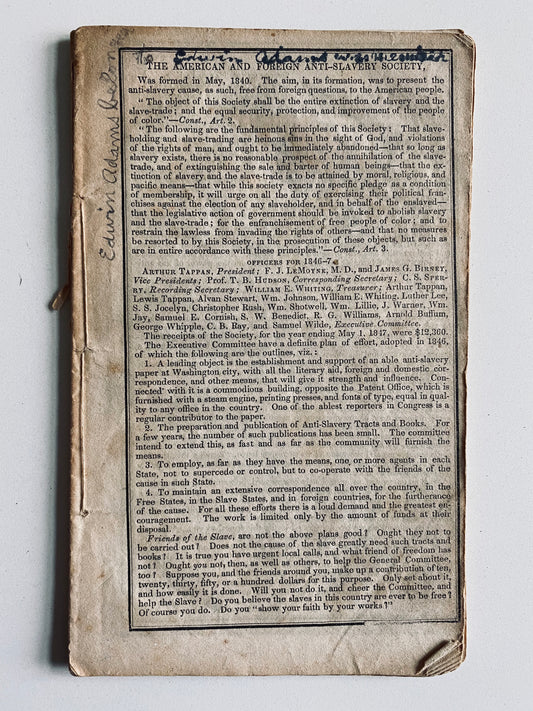 Edwin Adams was member
Edwin Adams
THE AMERICAN AND FOREIGN ANTI-SLAVERY SOCIETY,
Was formed in May, 1840. The aim, in its formation, was to present the
anti-slavery cause, as such, free from foreign questions, to the American people.
"The object of this Society shall be the entire extinction of slavery and the
slave-trade; and the equal security, protection, and improvement of the people
of color."—Const., Art. 2.
"The following are the fundamental principles of this Society: That slave-
holding and slave-trading are heinous sins in the sight of God, and violations
of the rights of man, and ought to be immediately abandoned—that so long as
slavery exists, there is no reasonable prospect of the annihilation of the slave-
trade, and of extinguishing the sale and barter of human beings—that the ex-
tinction of slavery and the slave-trade is to be attained by moral, religious, and
pacific means—that while this society exacts no specific pledge as a condition
of membership, it will urge on all the duty of exercising their political fran-
chises against the election of any slaveholder, and in behalf of the enslaved—
that the legislative action of government should be invoked to abolish slavery
and the slave-trade; for the enfranchisement of free people of color; and to
restrain the lawless from invading the rights of others—and that no measures
be resorted to by this Society, in the prosecution of these objects, but such as
are in entire accordance with these principles."—Const., Art. 3.
OFFICERS FOR 1846–7.
ARTHUR TAPPAN, President; F. J. LEMOYNE, M. D., and JAMES G. BIRNEY,
Vice Presidents; Prof. T. B. HUDSON, Corresponding Secretary; C. S. SPER-
RY, Recording Secretary; WILLIAM E. WHITING, Treasurer; Arthur Tappan,
Lewis Tappan, Alvan Stewart, Wm. Johnson, William E. Whiting, Luther Lee,
S. S. Jocelyn, Christopher Rush, Wm. Shotwell, Wm. Lillie, J. Warner, Wm.
Jay, Samuel E. Cornish, S. W. Benedict, R. G. Williams, Arnold Buffum,
George Whipple, C. B. Ray, and Samuel Wilde, Executive Committee.
The receipts of the Society, for the year ending May 1, 1847, were $12,360.
The Executive Committee have a definite plan of effort, adopted in 1846,
of which the following are the outlines, viz.:
1. A leading object is the establishment and support of an able anti-slavery
paper at Washington city, with all the literary aid, foreign and domestic cor-
respondence, and other means, that will give it strength and influence. Con-
nected with it is a commodious building, opposite the Patent Office, which is
furnished with a steam engine, printing presses, and fonts of type, equal in qual-
ity to any office in the country. One of the ablest reporters in Congress is a
regular contributor to the paper.
2. The preparation and publication of Anti-Slavery Tracts and Books. For
a few years, the number of such publications has been small. The committee
intend to extend this, as fast and as far as the community will furnish the
means.
3. To employ, as far as they have the means, one or more agents in each
State, not to supercede or control, but to co-operate with the friends of the
cause in such State.
4. To maintain an extensive correspondence all over the country, in the
Free States, in the Slave States, and in foreign countries, for the furtherance
of the cause. For all these efforts there is a loud demand and the greatest en-
couragement. The work is limited only by the amount of funds at their
disposal.
Friends of the Slave, are not the above plans good? Ought they not to
be carried out? Does not the cause of the slave greatly need such tracts and
books? It is true you have urgent local calls, and what friend of freedom has
not? Ought you not, then, as well as others, to help the General Committee,
too? Suppose you, and the friends around you, make up a contribution of ten,
twenty, thirty, fifty, or a hundred dollars for this purpose. Only set about it,
and how easily it is done. Will you not do it, and cheer the Committee, and
help the Slave? Do you believe the slaves in this country are ever to be free?
Of course you do. Do you "show your faith by your works?"